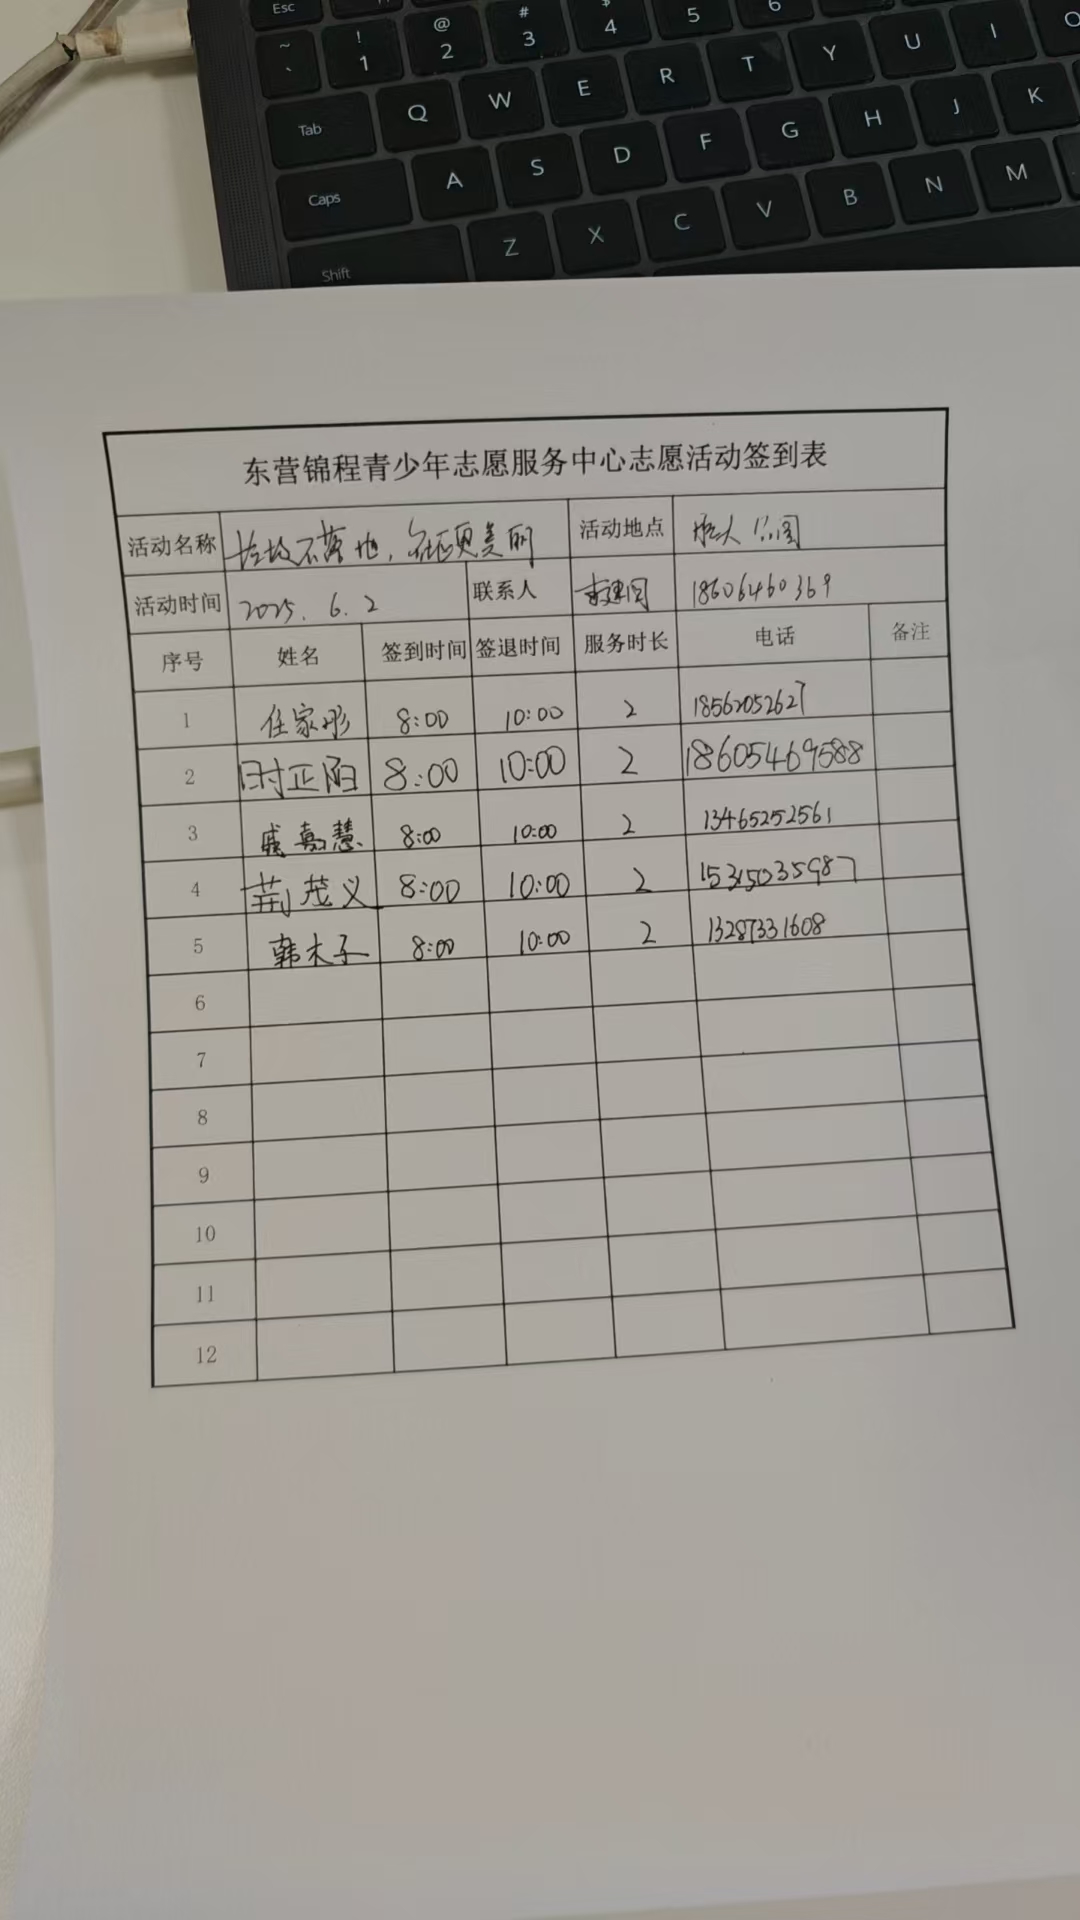 Esc
~ ! @ # $
` 1 2 3 4 5 6
Tab Q W E R T Y U I O
Caps A S D F G H J K
Shift Z X C V B N M
东营锦程青少年志愿服务中心志愿活动签到表
活动名称 垃圾不落地，社区更美丽 活动地点 公园
活动时间 2025.6.2 联系人 18606460369
序号 姓名 签到时间 签退时间 服务时长 电话 备注
1 任家彤 8:00 10:00 2 18562052627
2 时正阳 8:00 10:00 2 18605469588
3 戚嘉慧 8:00 10:00 2 13465252561
4 荆茂义 8:00 10:00 2 15315035987
5 韩木子 8:00 10:00 2 13287331608
6
7
8
9
10
11
12